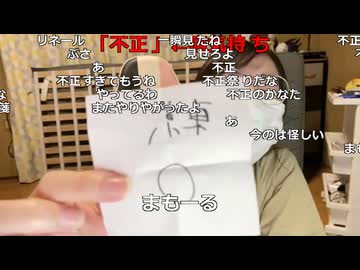 リネール 一瞬見たね 不正
「不正」 持ち
ぶさ 見せろよ
あ 不正 不
不正すぎてもうね 不正祭りだな
な やってるわ 不正のかなた
箋 またやりやがったよ
あ
今のは怪しい
まも
凛
○
まもーる